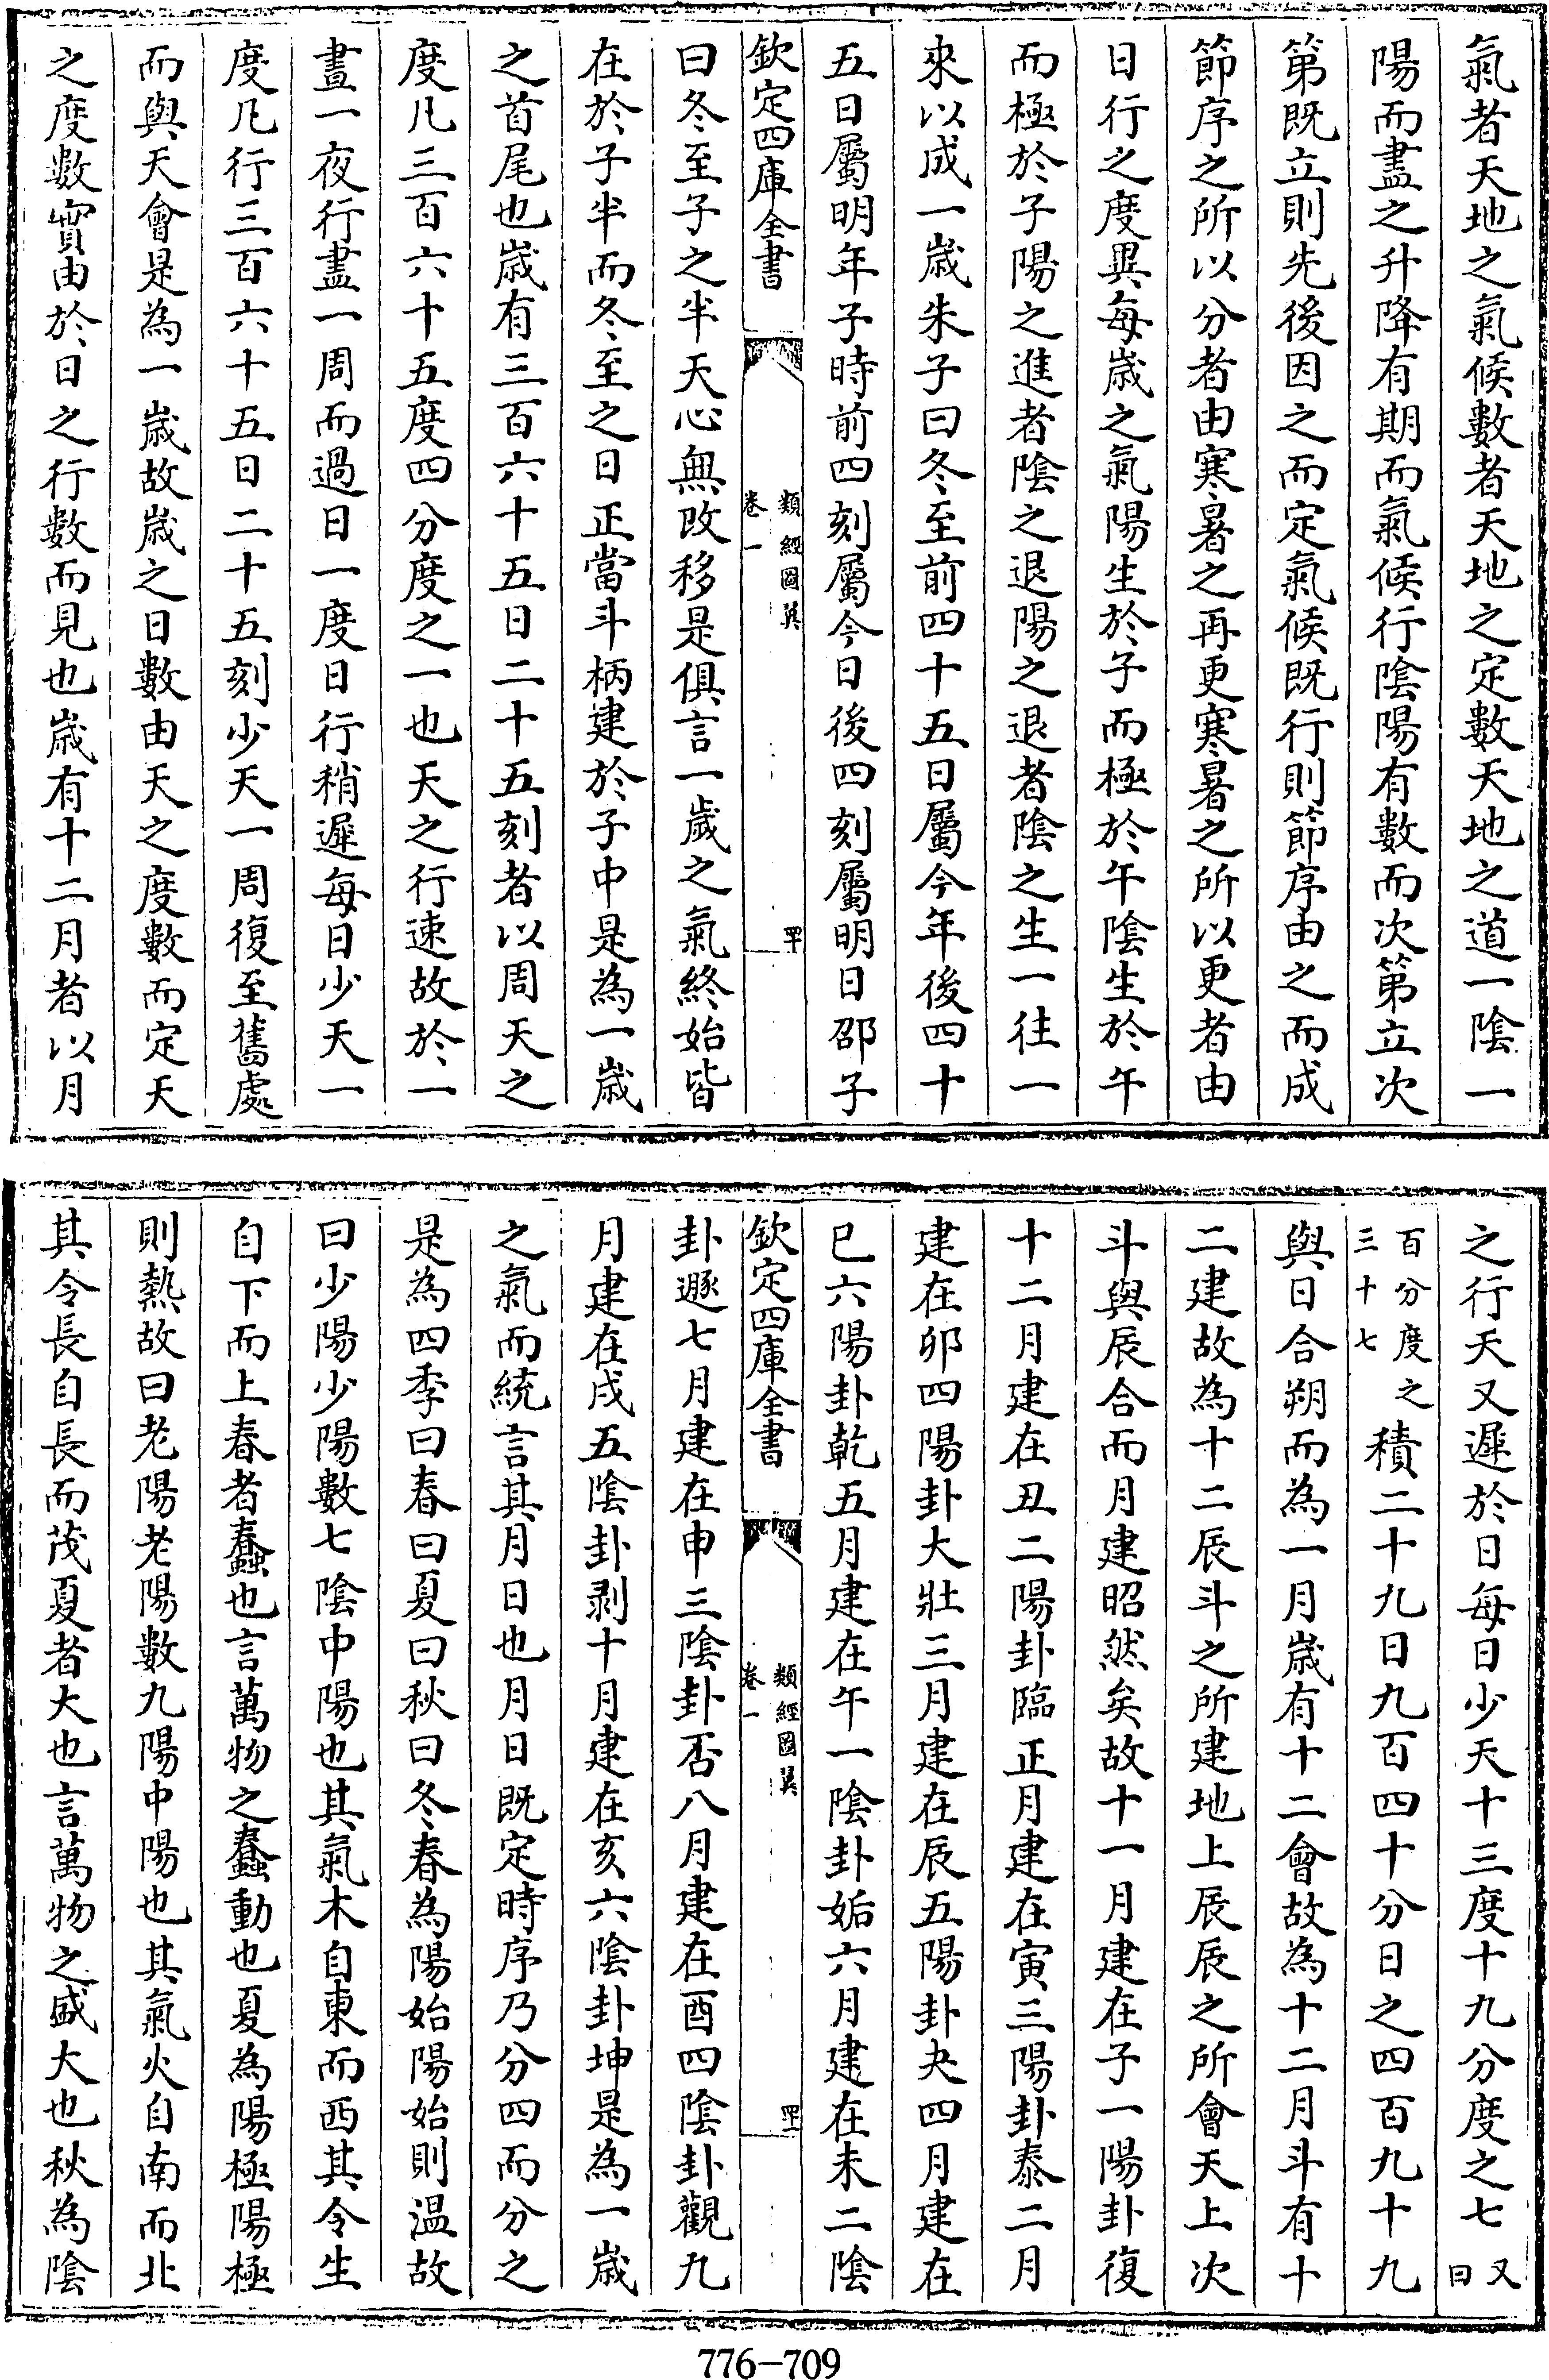 氣者天地之氣候數者天地之定數天地之道一陰一
陽而盡之升降有期而氣候行陰陽有數而次第立次
第既立則先後因之而定氣候既行則節序由之而成
節序之所以分者由寒暑之再更寒暑之所以更者由
日行之度異每歲之氣陽生於子而極於午陰生於午
而極於子陽之進者陰之退陽之退者陰之生一往一
來以成一歲朱子曰冬至前四十五日屬今年後四十
五日屬明年子時前四刻屬今日後四刻屬明日邵子
欽定四庫全書
類經圖翼
卷一
罕
曰冬至子之半天心無改移是俱言一歲之氣終始皆
在於子半而冬至之日正當斗柄建於子中是為一歲
之首尾也歲有三百六十五日二十五刻者以周天之
度凡三百六十五度四分度之一也天之行速故於一
晝一夜行盡一周而過日一度日行稍遲每日少天一
度凡行三百六十五日二十五刻少天一周復至舊處
而與天會是為一歲故歲之日數由天之度數而定天
之度數實由於日之行數而見也歲有十二月者以月
之行天又遲於日每日少天十三度十九分度之七又
曰
百分度之
三十七
積二十九日九百四十分日之四百九十九
與日合朔而為一月歲有十二會故為十二月斗有十
二建故為十二辰斗之所建地上辰辰之所會天上次
斗與辰合而月建昭然矣故十一月建在子一陽卦復
十二月建在丑二陽卦臨正月建在寅三陽卦泰二月
建在卯四陽卦大壯三月建在辰五陽卦夬四月建在
巳六陽卦乾五月建在午一陰卦姤六月建在未二陰
欽定四庫全書
類經圖翼
卷一
卦遯七月建在申三陰卦否八月建在酉四陰卦觀九
月建在戌五陰卦剥十月建在亥六陰卦坤是為一歲
之氣而統言其月日也月日既定時序乃分四而分之
是為四季曰春曰夏曰秋曰冬春為陽始陽始則温故
曰少陽少陽數七陰中陽也其氣木自東而西其令生
自下而上春者蠢也言萬物之蠢動也夏為陽極陽極
則熱故曰老陽老陽數九陽中陽也其氣火自南而北
其令長自長而茂夏者大也言萬物之盛大也秋為陰
776-709